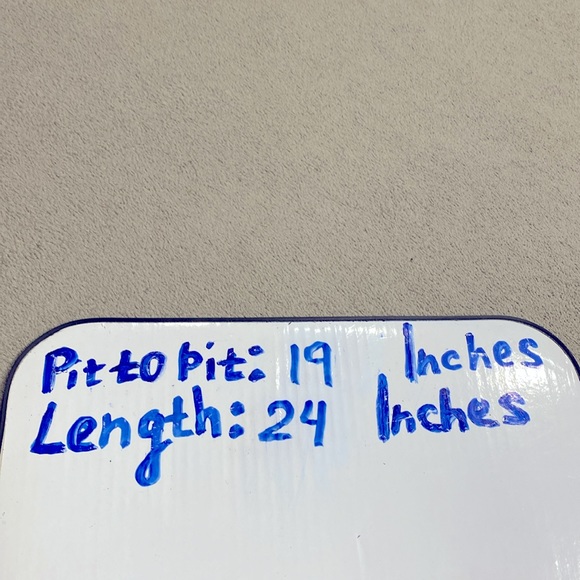 Pit to pit: 19 Inches
Length: 24 Inches